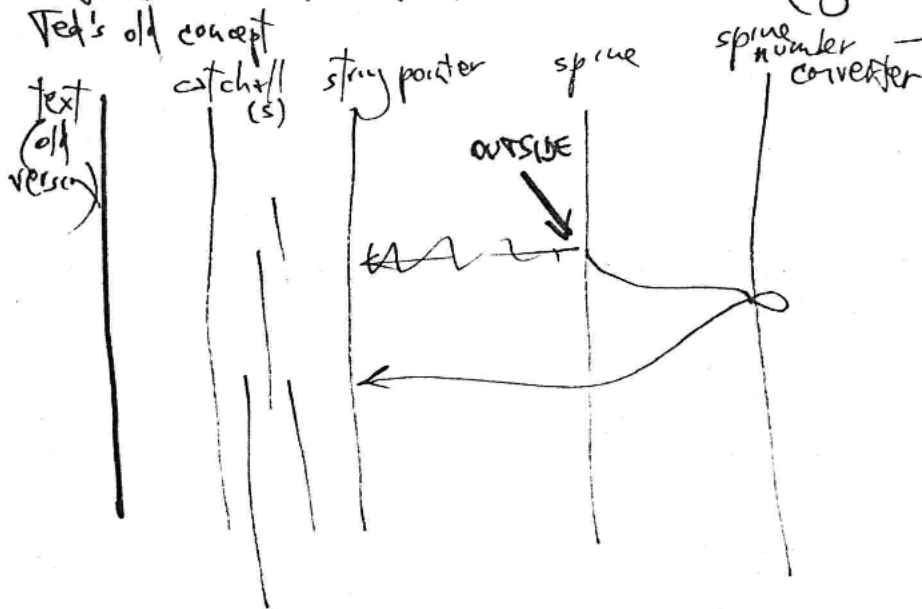 Ted's old concept
text
(old
version)
catchall
(s)
string pointer
spine
spine
number
converter
OUTSIDE